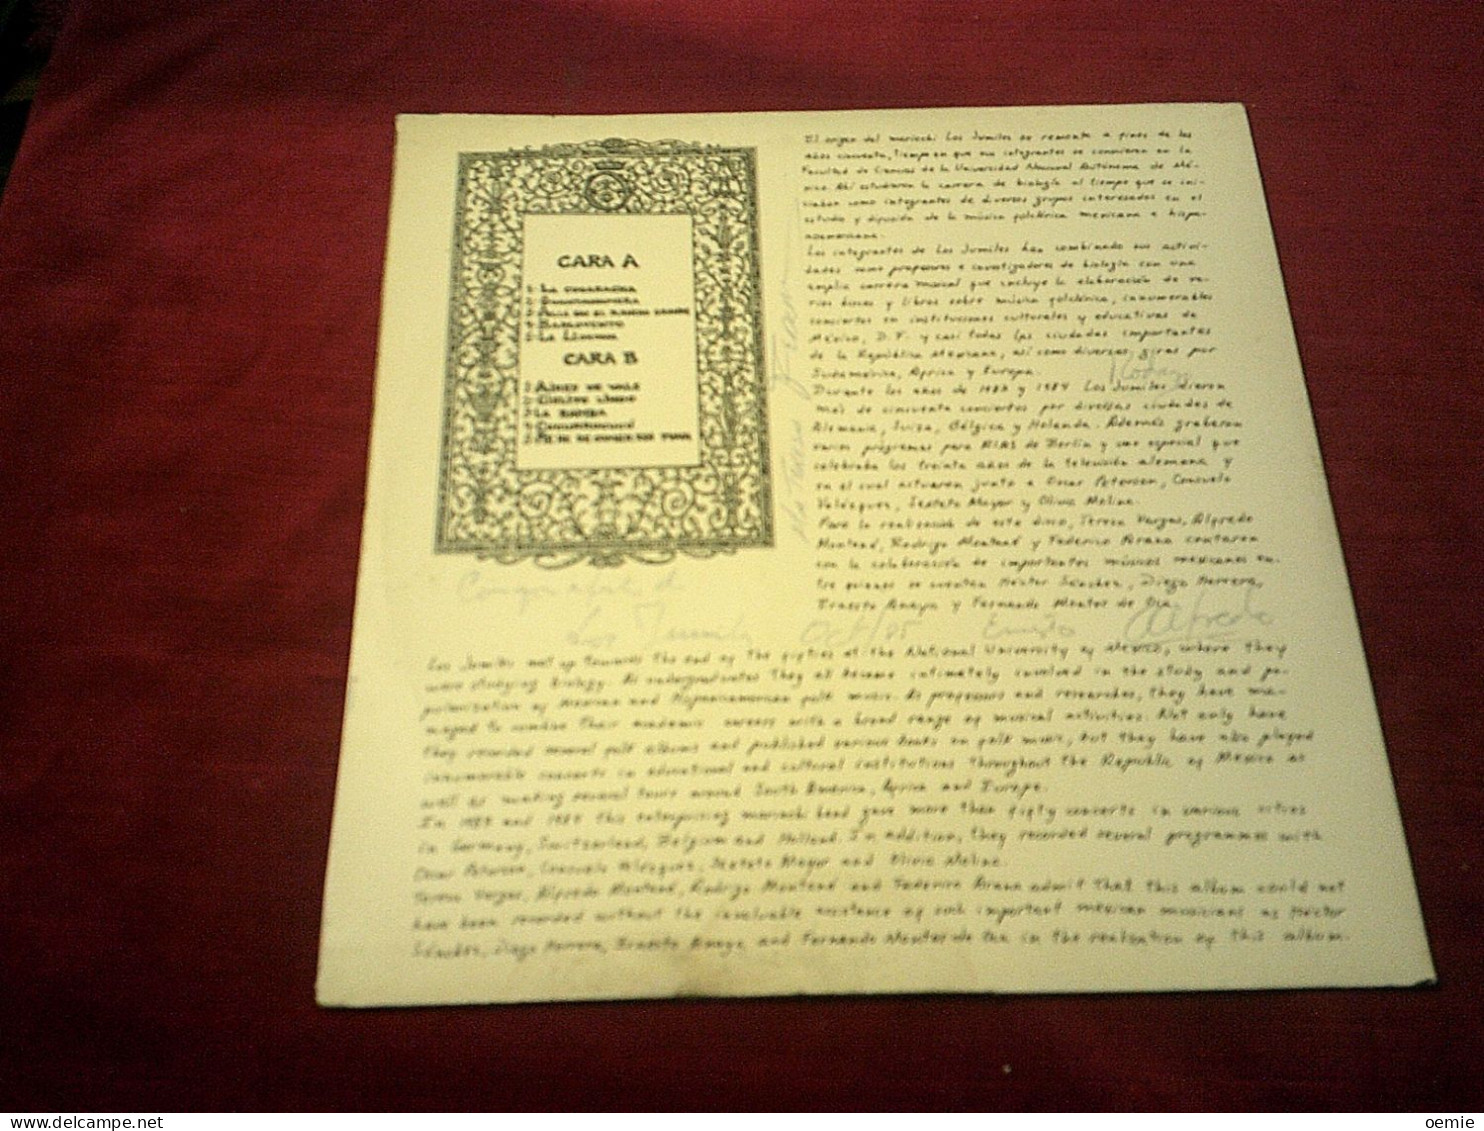 CARA A
1- LA CUCARACHA
2- GUANTANAMERA
3- ALLA EN EL RANCHO GRANDE
4- BARLOVENTO
5- LA LLORONA
CARA B
2- CIELITO LINDO
3- LA BAMBA
El origen del mariachi Los Jumiles se remonta a fines de los
años cincuenta, tiempo en que sus integrantes se conocieron en la
Facultad de Ciencias de la Universidad Nacional Autónoma de Mé-
xico. Ahí estudiaron la carrera de biología al tiempo que se ini-
ciaban como integrantes de diversos grupos interesados en el
estudio y difusión de la música folclórica mexicana e hispa-
noamericana.
Los integrantes de Los Jumiles han combinado sus activi-
dades como profesores e investigadores de biología con una
amplia carrera musical que incluye la elaboración de va-
rios discos y libros sobre música folclórica, innumerables
conciertos en instituciones culturales y educativas de
México, D.F. y casi todas las ciudades importantes
de la República Mexicana, así como diversas giras por
Sudamérica, Africa y Europa.
Durante los años de 1983 y 1984 Los Jumiles dieron
más de cincuenta conciertos por diversas ciudades de
Alemania, Suiza, Bélgica y Holanda. Además grabaron
varios programas para RIAS de Berlín y uno especial que
celebraba los treinta años de la televisión alemana y
en el cual actuaron junto a Oscar Peterson, Consuelo
Velázquez, Sexteto Mayor y Olivia Molina.
Para la realización de este disco, Teresa Vargas, Alfredo
Montead, Rodrigo Montead y Federico Arana contaron
con la colaboración de importantes músicos mexicanos en-
tre quienes se cuentan Héctor Sánchez, Diego Herrera,
Ernesto Anaya y Fernando Montes de Oca.
Los Jumiles Oct/85 Ernesto Alfredo
Los Jumiles met up towards the end of the fifties at the National University of Mexico, where they
were studying biology. As undergraduates they all became intimately involved in the study and po-
pularization of Mexican and Hispanoamerican folk music. As professors and researchers, they have ma-
naged to combine their academic careers with a broad range of musical activities. Not only have
they recorded several folk albums and published various books on folk music, but they have also played
innumerable concerts in educational and cultural institutions throughout the Republic of Mexico as
well as making several tours around South America, Africa and Europe.
In 1983 and 1984 this enterprising mariachi band gave more than fifty concerts in various cities
in Germany, Switzerland, Belgium and Holland. In addition, they recorded several programmes with
Oscar Peterson, Consuelo Velázquez, Sexteto Mayor and Olivia Molina.
Teresa Vargas, Alfredo Montead, Rodrigo Montead and Federico Arana admit that this album could not
have been recorded without the invaluable assistance of such important mexican musicians as Héctor
Sánchez, Diego Herrera, Ernesto Anaya and Fernando Montes de Oca in the realization of this album.
www.delcampe.net
oemie